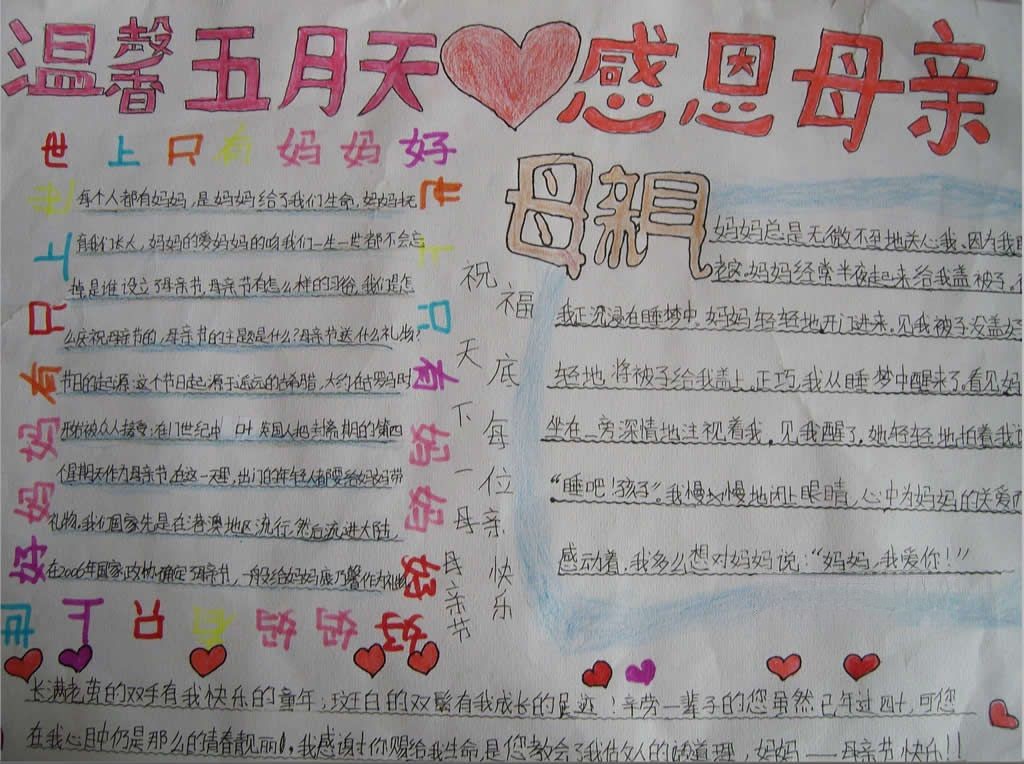 温馨五月天 感恩母亲
世上只有妈妈好
世上只有妈妈好
每个人都有妈妈,是妈妈给了我们生命,妈妈抚
育我们长大,妈妈的爱妈妈的吻我们一生一世都不会忘
掉是谁设立了母亲节,母亲节有怎么样的习俗,我们是怎
么庆祝母亲节的,母亲节的主题是什么?母亲节送什么礼物?
节日的起源:这个节日起源于遥远的古希腊,大约在古罗马时
形始被众人接受,在17世纪中 叶英国人把封斋期的第四
个星期天作为母亲节,在这一天里,出门的年轻人都要给妈妈带
礼物,我们国家先是在港澳地区流行,然后流进大陆,
在2006年国家政协确定母亲节,一般给妈妈康乃馨作为礼物
世上只有妈妈好
世上只有妈妈好
祝福
天底
下每
一位
母亲
母亲节
快乐
母親
妈妈总是无微不至地关心我、因为我
妈妈经常半夜起来给我盖被子,
我正沉浸在睡梦中,妈妈轻轻地开门进来,见我被子没盖好
轻地,将被子给我盖上,正巧,我从睡梦中醒来了,看见妈
坐在一旁深情地注视着我。见我醒了,她轻轻地拍着我
“睡吧!孩子”。我慢慢地闭上眼睛,心中为妈妈的关爱
感动着,我多么想对妈妈说:“妈妈,我爱你!”
长满老茧的双手有我快乐的童年;斑白的双鬓有我成长的足迹!辛劳一辈子的您虽然已年过四十,可您
在我心目中仍是那么的青春靓丽,我感谢你赐给我生命,是您教会了我做人的道理,妈妈——母亲节快乐!!